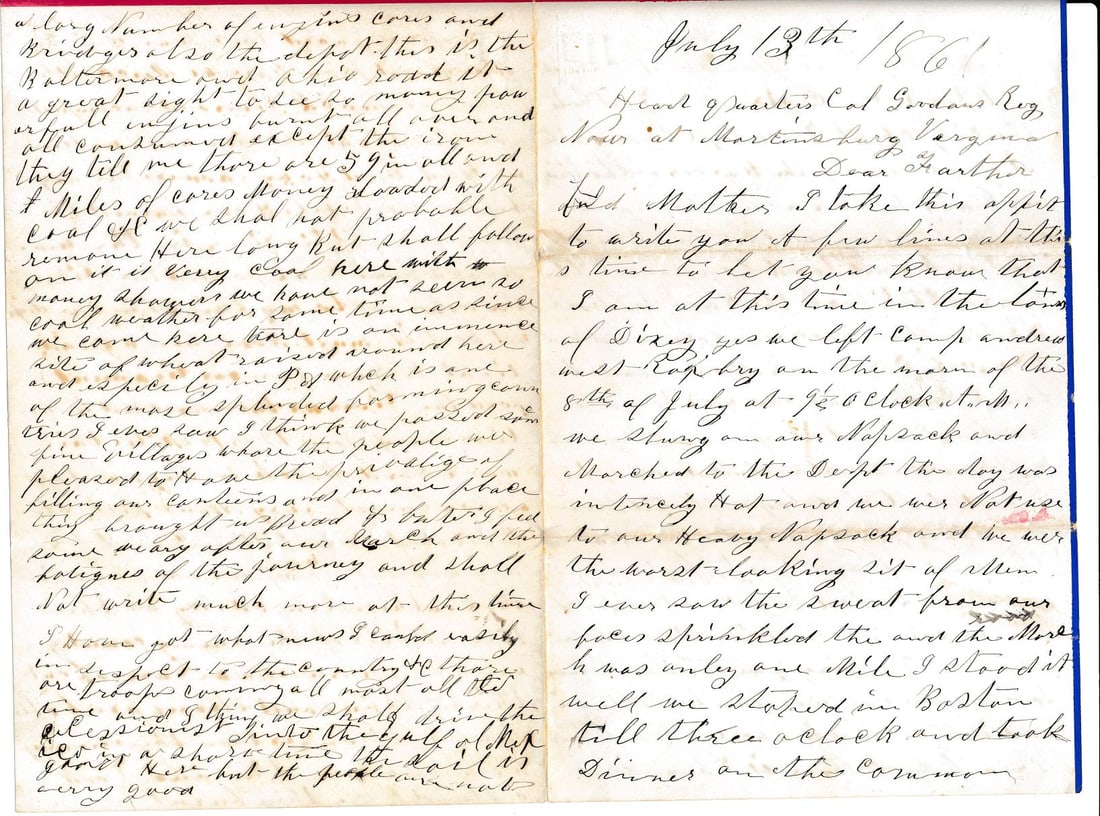 July 13th 1861
Heard quarters Col Gordans Reg
Now at Martinsburg Vergina
Dear Farther
And Mother I take this
to write you A few lines at thi
s time to let you know that
I am at this time in the
of Dixey yes we left Camp andrew
west Roxbry on the morn of the
8th of July at 9½ Oclock A.M..
we slung on our Napsack and
Marched to the Deapt the day was
intencely Hot and we wer Not use
to our Heavy Napsack and we wer
the worst looking sit of Men
I ever saw the sweat from our
faces sprinkled the and the Marc
h was onley one Mile I stood it
well we stoped in Boston
till three oclock and took
Dinner on the common
a larg Number of enjins cares and
Bridges also the depot this is the
Baltermore and Ohio road it
a great sight to see so money pow
erfull enjins burnt all over and
all consumed except the iron
they till me thare are 59 in all and
Miles of cares Money loaded with
Coal &C we shal not probable
remone Here long but shall follow
on it is Verry Cool here with
money showers we have not seen so
cool weather for some time as since
we came here thare is an immence
site of wheat raised around here
and especily in Pa which is one
of the mose splended farming coun
tries I ever saw I think we passed som
fine Villages whare the people wer
pleased to Have the privalige of
filling our canteens and in one place
they brought us Bread & buter I feel
some weary after our and the
fatignes of the journey and shall
Not write much more at this time
I Have got what news I canld easily
in respect to the country &C thare
are troops comming all most all the
time and I think we shall drive the
cecessionist into the gulf of Mex
ico in a short time the soil is
good Here but the people are not
verry good